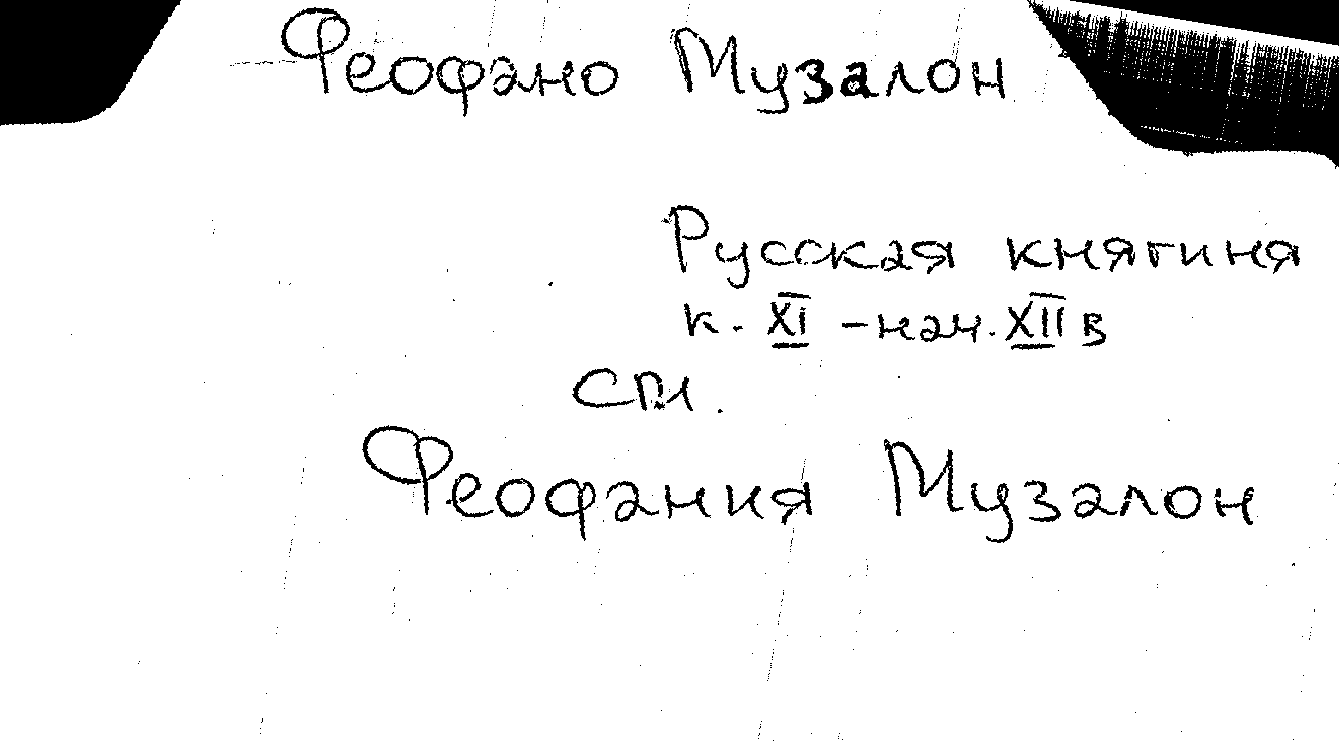 Феофано Музалон
Русская княгиня
к. XI – нач. XII в
см.
Феофания Музалон